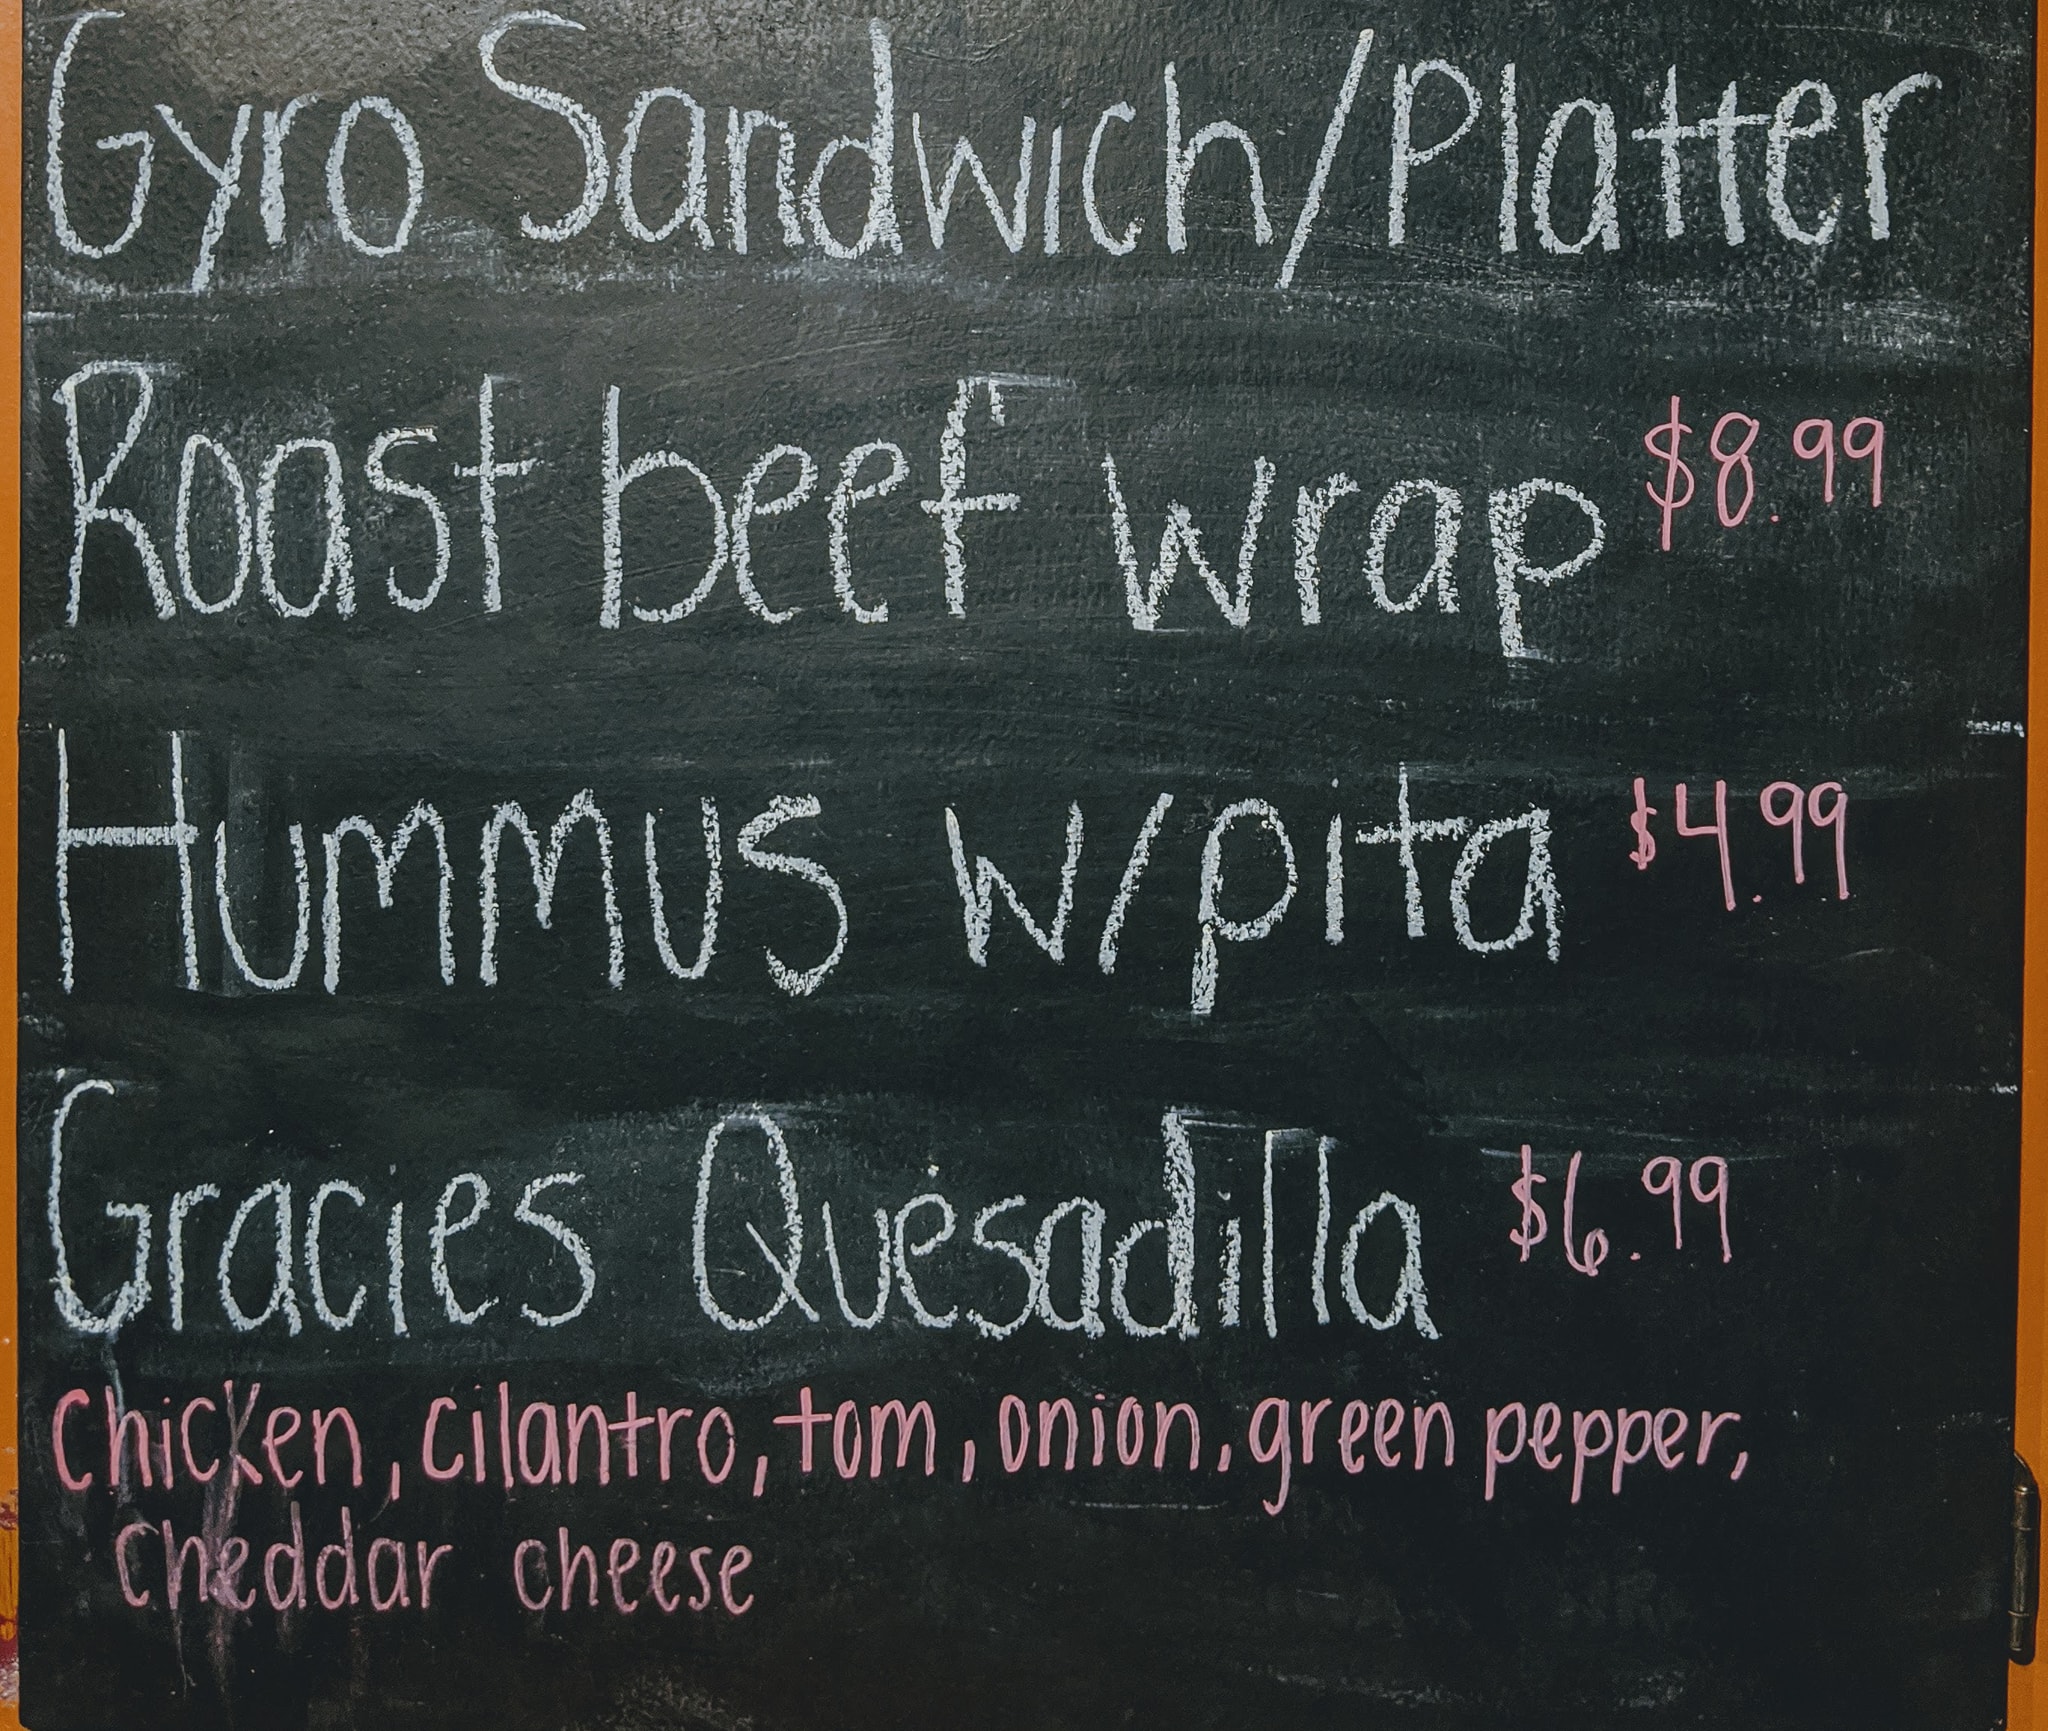 Gyro Sandwich/Platter
Roast beef wrap $8.99
Hummus w/pita $4.99
Gracies Quesadilla $6.99
chicken, cilantro, tom, onion, green pepper,
cheddar cheese